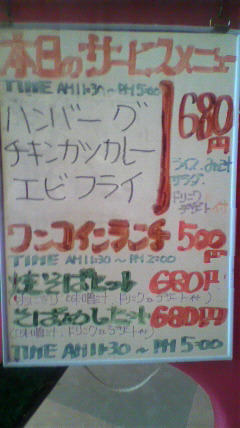 本日のサービスメニュー
TIME AM11:30〜PM5:00
ハンバーグ
チキンカツカレー
エビフライ
680円
ライス、みそ汁
サラダ、
ドリンク
デザート付
ワンコインランチ 500円
TIME AM11:30〜PM2:00
焼そばセット 680円
味噌汁、ドリンク、デザート付)
そばめしセット 680円
(味噌汁、ドリンク、デザート付)
TIME AM11:30〜PM5:00